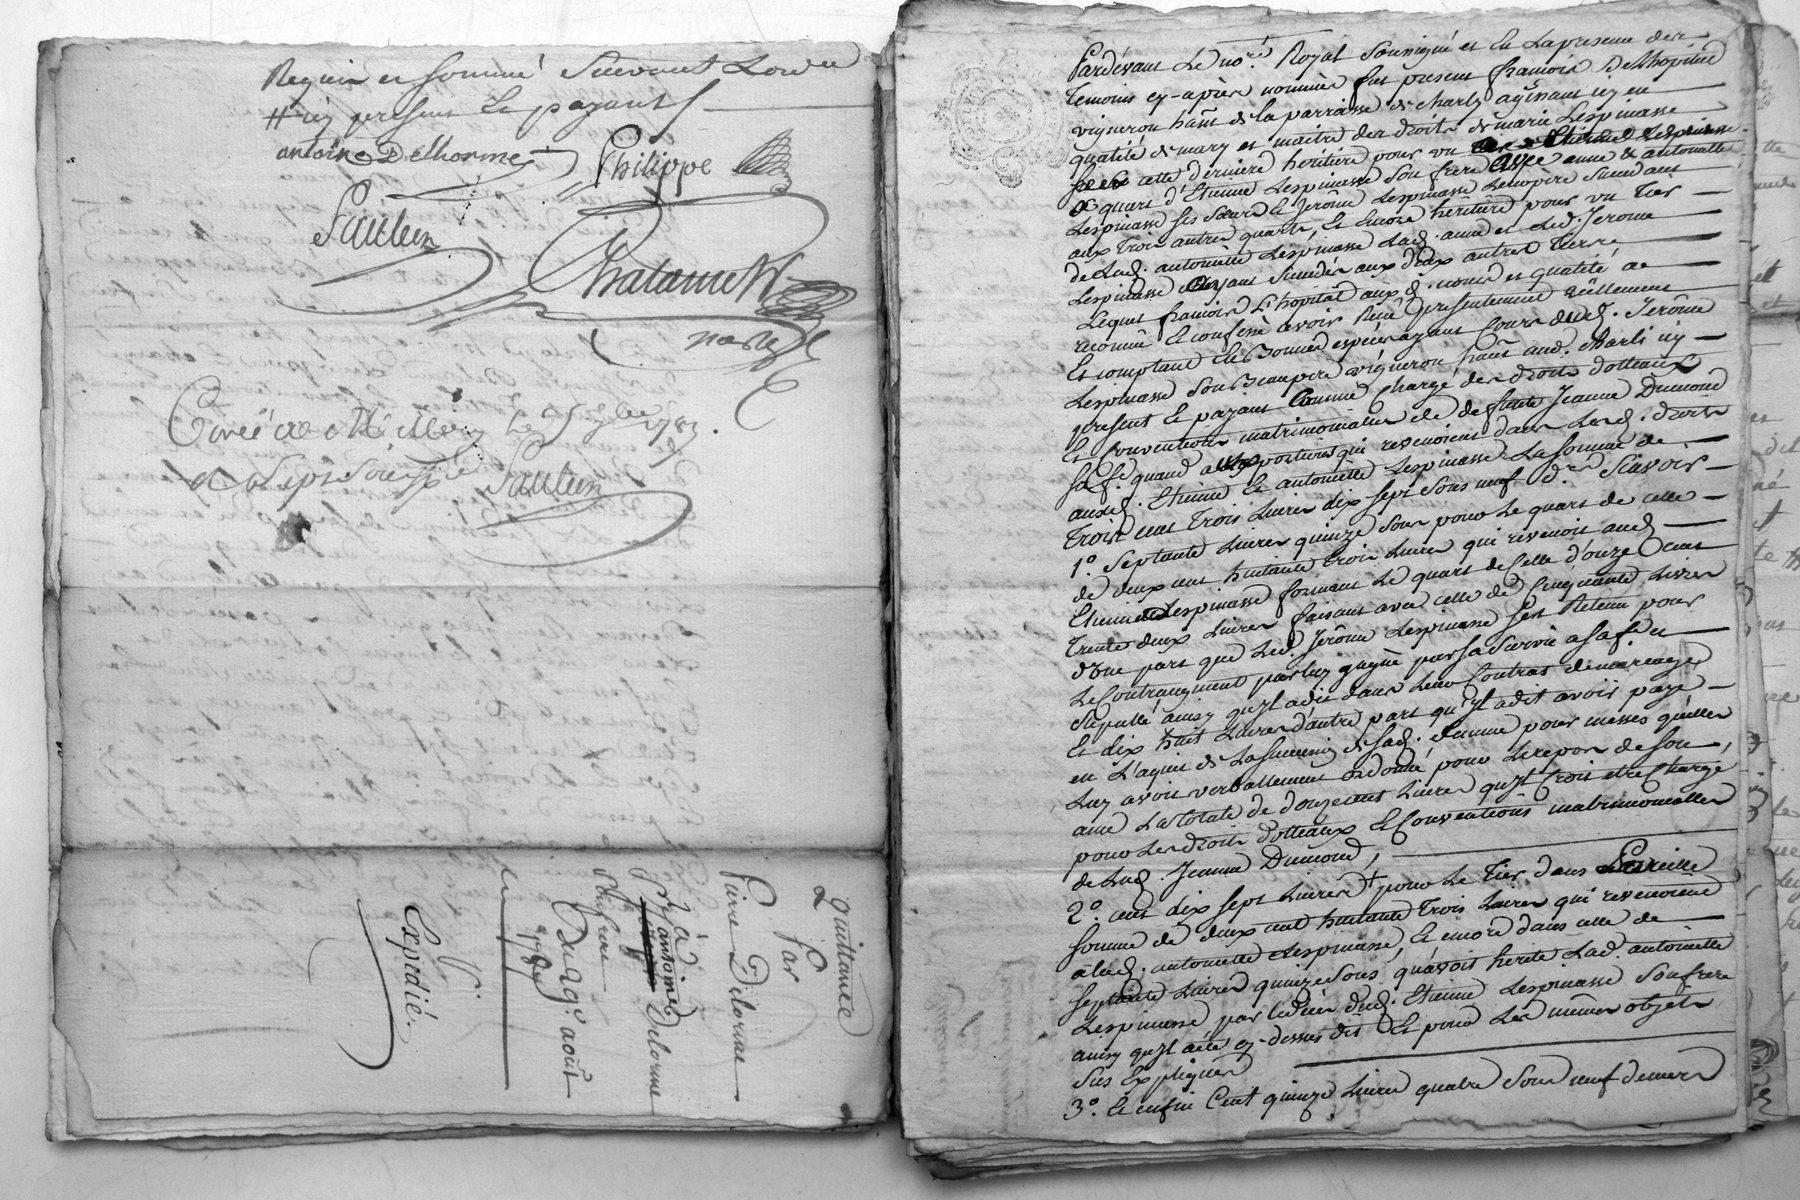 Requis et sommé suivant Lord.ce
# icy présent et payant
antoine Delhorme
Philippe
Sautun
Chatanett
no.re
Con.lé a Millery le 1783.
R. Sept Sous
Sautun
quittance
Par
Delorme
à
antoine Delorme
Du 29e. août
178
Expédié.
Pardevant Le no.re Royal soussigné et En La présence des
Temoins cy-après nommés fut present francois Delhopital
vigneron ha'nt de la parroisse de charly agissant icy en
qualité de mary et maitre des droits de marie Lespinasse
cette dernière heritière pour un
quart d'Etienne Lespinasse Son frere avec anne & antoinette
Lespinasse ses Sœurs & Jerome Lespinasse Leur père Succedant
aux Trois autres quarts, Et Encore héritière pour un Tier
de Lad. antoinette Lespinasse Lad. anne et Led. Jerome
Lespinasse ayant Succédés aux deux autres Tiers
Lequel francois L'hopital aux d. noms et qualité a
reconnu Et confessé avoir Reçu presentement reéllement
Et comptant En Bonnes espèces ayant Cours dud. Jerôme
Lespinasse Son Beaupere vigneron ha'nt aud. charli icy
present Et payant Comme Chargé des droits dotteaux
Et Conventions matrimonialles de defunte Jeanne Dumond
sa fe. quand aux portions qui revenoient dans Lesd. droits
auxd. Etienne Et antoinette Lespinasse La somme de
Trois cent Trois Livres dix sept sous neuf d.rs Scavoir
1°. Septante Livres quinze Sous pour Le quart de celle
de deux cent huitante Trois Livres qui revenoit aud.
Etienne Lespinasse formant Le quart de Celle d'onze Cent
Trente deux Livres faisant avec celle de Cinquante Livres
d'une part que Led. Jerôme Lespinasse s'est Retenu pour
Le Contraugment par luy gagné par sa Survie a sa fe. et
Stipullé ainsy qu'yl a dit dans Leur Contrat de mariage
Et dix huit Livres d'autre part qu'yl a dit avoir payé
en L'aquit de La Succession de sad. femme pour messes qu'elle
Luy avoit verballement ordonné pour Le repos de son
ame La totale de douze cent Livres qu'yl Croit etre Chargé
pour Les droits dotteaux Et Conventions matrimonialles
de Lad. Jeanne Dumond,
2°. cent dix sept Livres + pour Le Tier dans Pareille
Somme de deux cent huitante Trois Livres qui revenoient
a lad. antoinette Lespinasse, Et encore dans celle de
septante Livres quinze Sous, qu'avoit herité Lad. antoinette
Lespinasse, par le décés dud. Etienne Lespinasse Son frere
ainsy qu'yl a été cy-dessus dit Et pour Les mêmes objets
Sus Expliqués
3°. Et enfin Cent quinze Livres quatre Sous neuf deniers